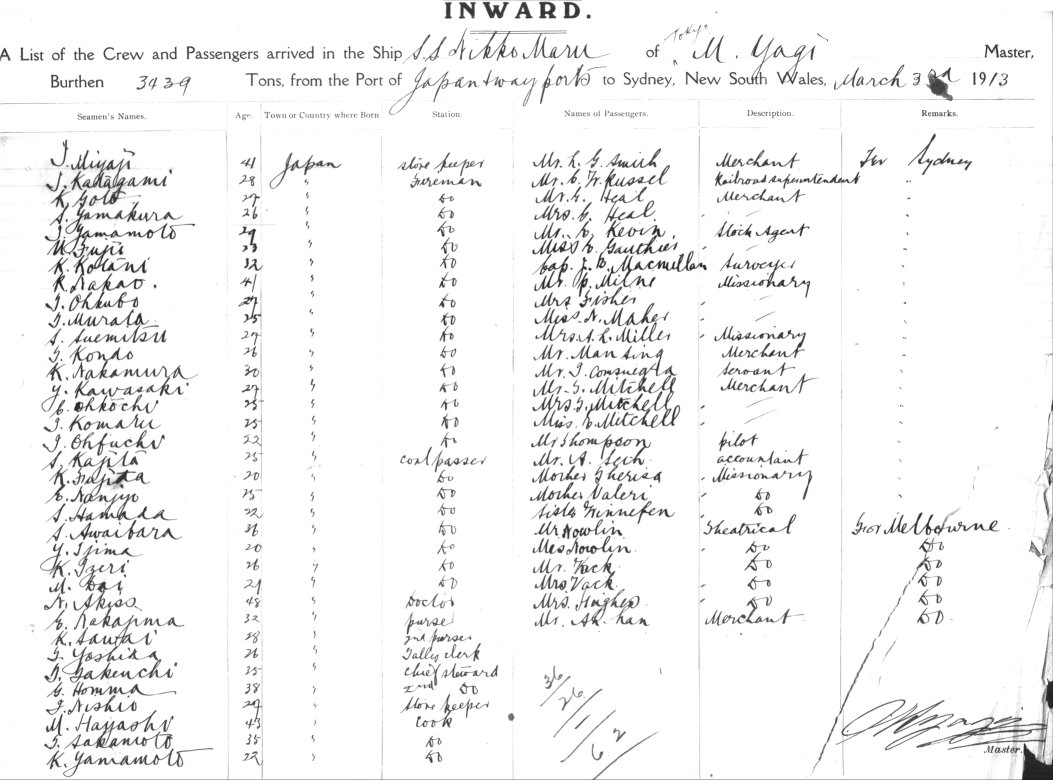 INWARD.
Tokyo
A List of the Crew and Passengers arrived in the Ship S.S Nikko Maru of M. Yagi Master,
Burthen 3439 Tons, from the Port of Japan & way ports to Sydney, New South Wales, March 3rd 1913
Seamen's Names. Age. Town or Country where Born Station. Names of Passengers. Description. Remarks.
T. Miyaji 41 Japan store keeper Mr. L. G. Smith Merchant For Sydney
T. Katagami 28 " Fireman Mr. C. W. Russel Railroad superintendent "
K. Goto 27 " Do Mr. G. Heal Merchant "
S. Yamakura 26 " Do Mrs. G. Heal "
T. Yamamoto 29 " Do Mr. C. Kevin. Stock Agent "
U. Fujii 23 " Do Miss E. Gauthier "
K. Kotani 32 " Do Cap. J. D. Macmullan Surveyer "
K. Nakao. 41 " Do Mr. P. Milne Missionary "
T. Ohkubo 27 " Do Mrs Fisher "
T. Murata 25 " Do Miss. N. Maher "
S. Suemitsu 27 " Do Mrs. A. L. Miller Missionary "
T. Kondo 26 " Do Mr. Man Sing Merchant "
K. Nakamura 30 " Do Mr. T. Consuegra Servant "
Y. Kawasaki 27 " Do Mr. G. Mitchell Merchant "
C. Ohkochi 25 " Do Mrs G. Mitchell "
T. Komaru 25 " Do Miss. E. Mitchell "
T. Ohfuchi 22 " Do Mr Thompson pilot "
S. Kajita 25 " coal passer Mr. A. accountant "
K. Fujita 20 " Do Mother Therisa Missionary "
E. Nanjyo 25 " Do Mother Valeri Do "
S. Hamada 22 " Do Sister Winnefen Do "
S. Awaibara 36 " Do Mr Nowlin Theatrical For Melbourne
Y. Ijima 20 " Do Mes Nowlin Do Do
K. Izeri 26 " Do Mr. Vack Do Do
M. Doi 21 " Do Mrs Vack Do Do
N. 48 " Doctor Mrs. Hughes Do Do
E. Nakajima 32 " purser Mr. Ah. han Merchant Do
K. Sawai 28 " 2nd purser
T. Yoshida 26 " Talley clerk
T. Takenchi 35 " Chief steward
G. Homma 38 " 2nd Do
T. Nishio 29 " Store keeper
M. Hayashi 43 " Cook
T. Sakamoto 35 " Do
K. Yamamoto 22 " Do
36/26/1/62
Master.